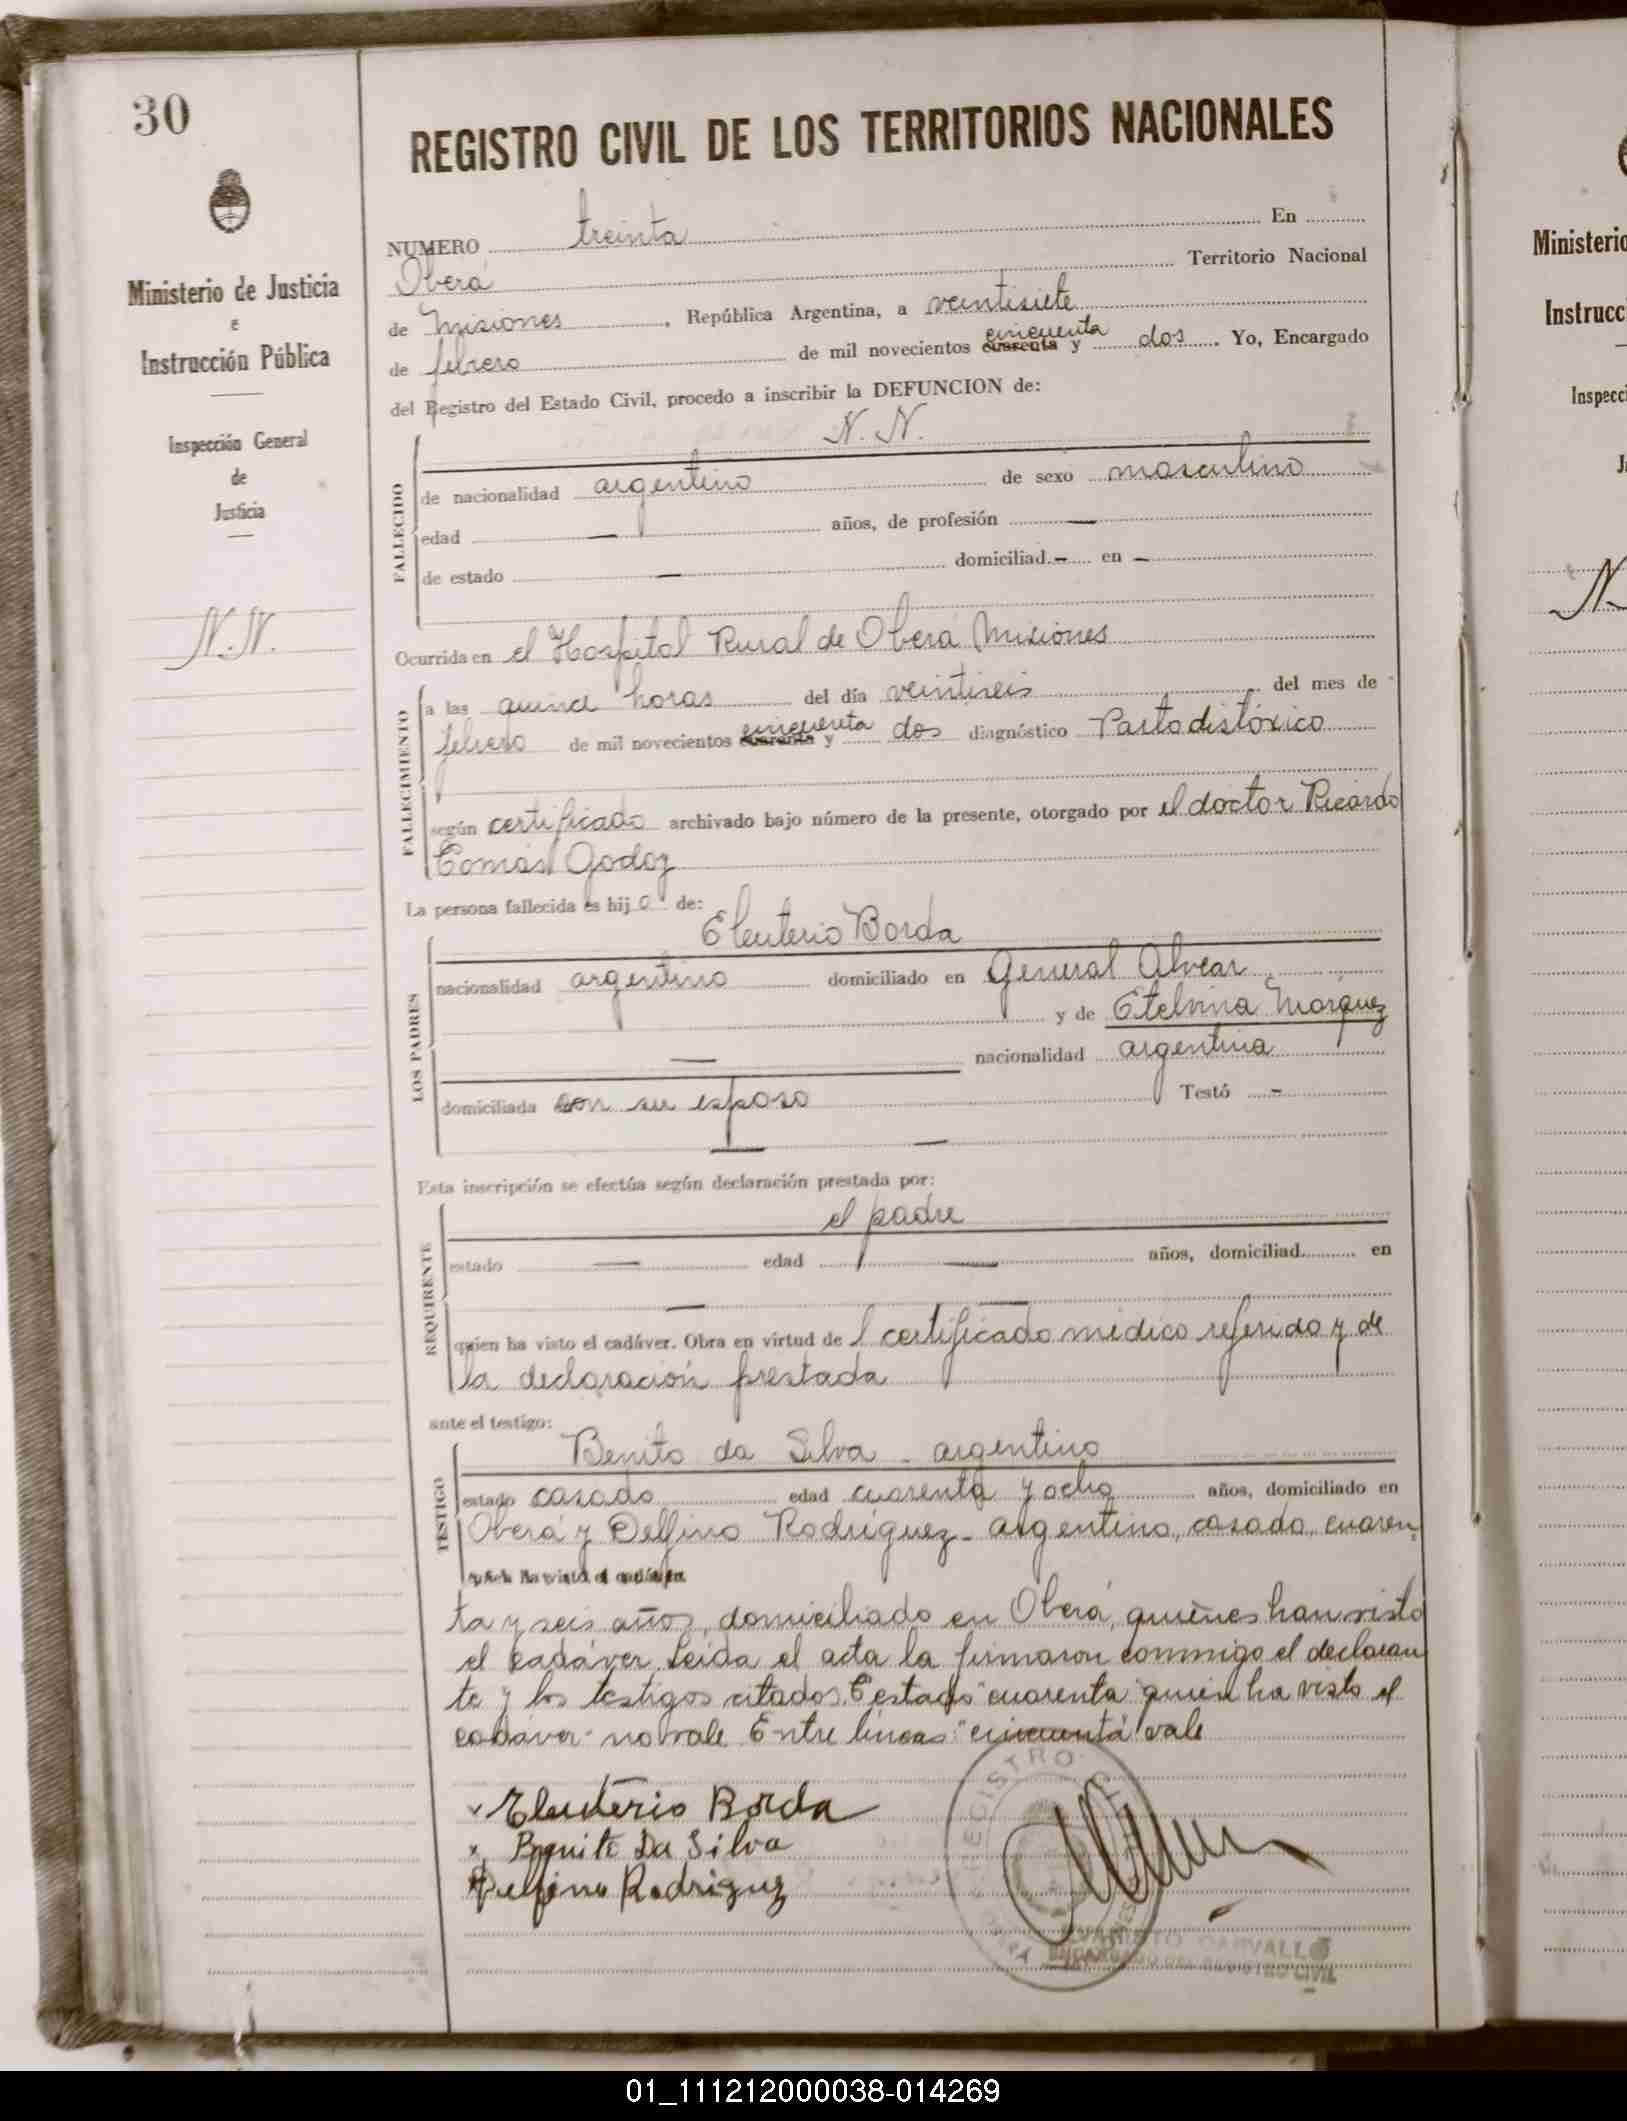 30
Ministerio de Justicia
e
Instrucción Pública
Inspección General
de
Justicia
N. N.
REGISTRO CIVIL DE LOS TERRITORIOS NACIONALES
NUMERO treinta En
Oberá Territorio Nacional
de Misiones, República Argentina, a veintisiete
cincuenta
de febrero de mil novecientos cuarenta y dos. Yo, Encargado
del Registro del Estado Civil, procedo a inscribir la DEFUNCION de:
N. N.
FALLECIDO
de nacionalidad argentino de sexo masculino
edad — años, de profesión —
de estado — domiciliad.— en —
Ocurrida en el Hospital Rural de Oberá Misiones
FALLECIMIENTO
a las quince horas del día veintiseis del mes de
cincuenta
febrero de mil novecientos cuarenta y dos diagnóstico Parto distóxico
según certificado archivado bajo número de la presente, otorgado por el doctor Ricardo
Tomás Godoy
La persona fallecida es hijo de:
LOS PADRES
Eleuterio Borda
nacionalidad argentino domiciliado en General Alvear
y de Etelvina Márquez
— nacionalidad argentina
domiciliada con su esposo Testó —
— —
Esta inscripción se efectúa según declaración prestada por:
REQUIRENTE
el padre
estado — edad — años, domiciliad en
— —
quien ha visto el cadáver. Obra en virtud de l certificado médico referido y de
la declaración prestada
ante el testigo:
TESTIGO
Benito da Silva - argentino
estado casado edad cuarenta y ocho años, domiciliado en
Oberá y Delfino Rodríguez - argentino, casado, cuaren-
quien ha visto el cadáver
ta y seis años, domiciliado en Oberá, quienes han visto
el cadáver. Leída el acta la firmaron conmigo el declaran
te y los testigos citados. Testado "cuarenta" quien ha visto el
cadáver" no vale. Entre líneas: "cincuenta" vale
Eleuterio Borda
Benito Da Silva
Delfino Rodriguez
REGISTRO
CARVALLO
ENCARGADO DEL REGISTRO CIVIL
Ministerio
Instrucc
Inspecci
J
N
01_111212000038-014269